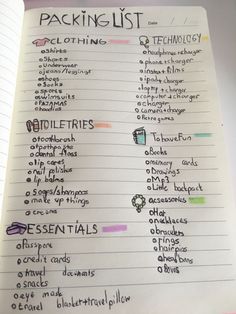 PACKING LIST
Date / /
CLOTHING
shirts
Shoes
underwear
jeans/leggings
shoes
Socks
sports
swimsuits
PAJAMAS
TOILETRIES
toothbrush
dental floss
nail polishes
lip balms
Soaps/shampoos
make up things
creams
ESSENTIALS
Passport
credit cards
travel documents
snacks
eye mask
travel blanket+travel pillow
TECHNOLOGY
headphones+charger
phone+charger
insta+films
ipad+charger
computer+charger
charger
camera+charger
To have Fun
Books
memory cards
Drawings
MP3
Little backpack
accessories
Hat
necklaces
bracelets
rings
hairpins
Bows